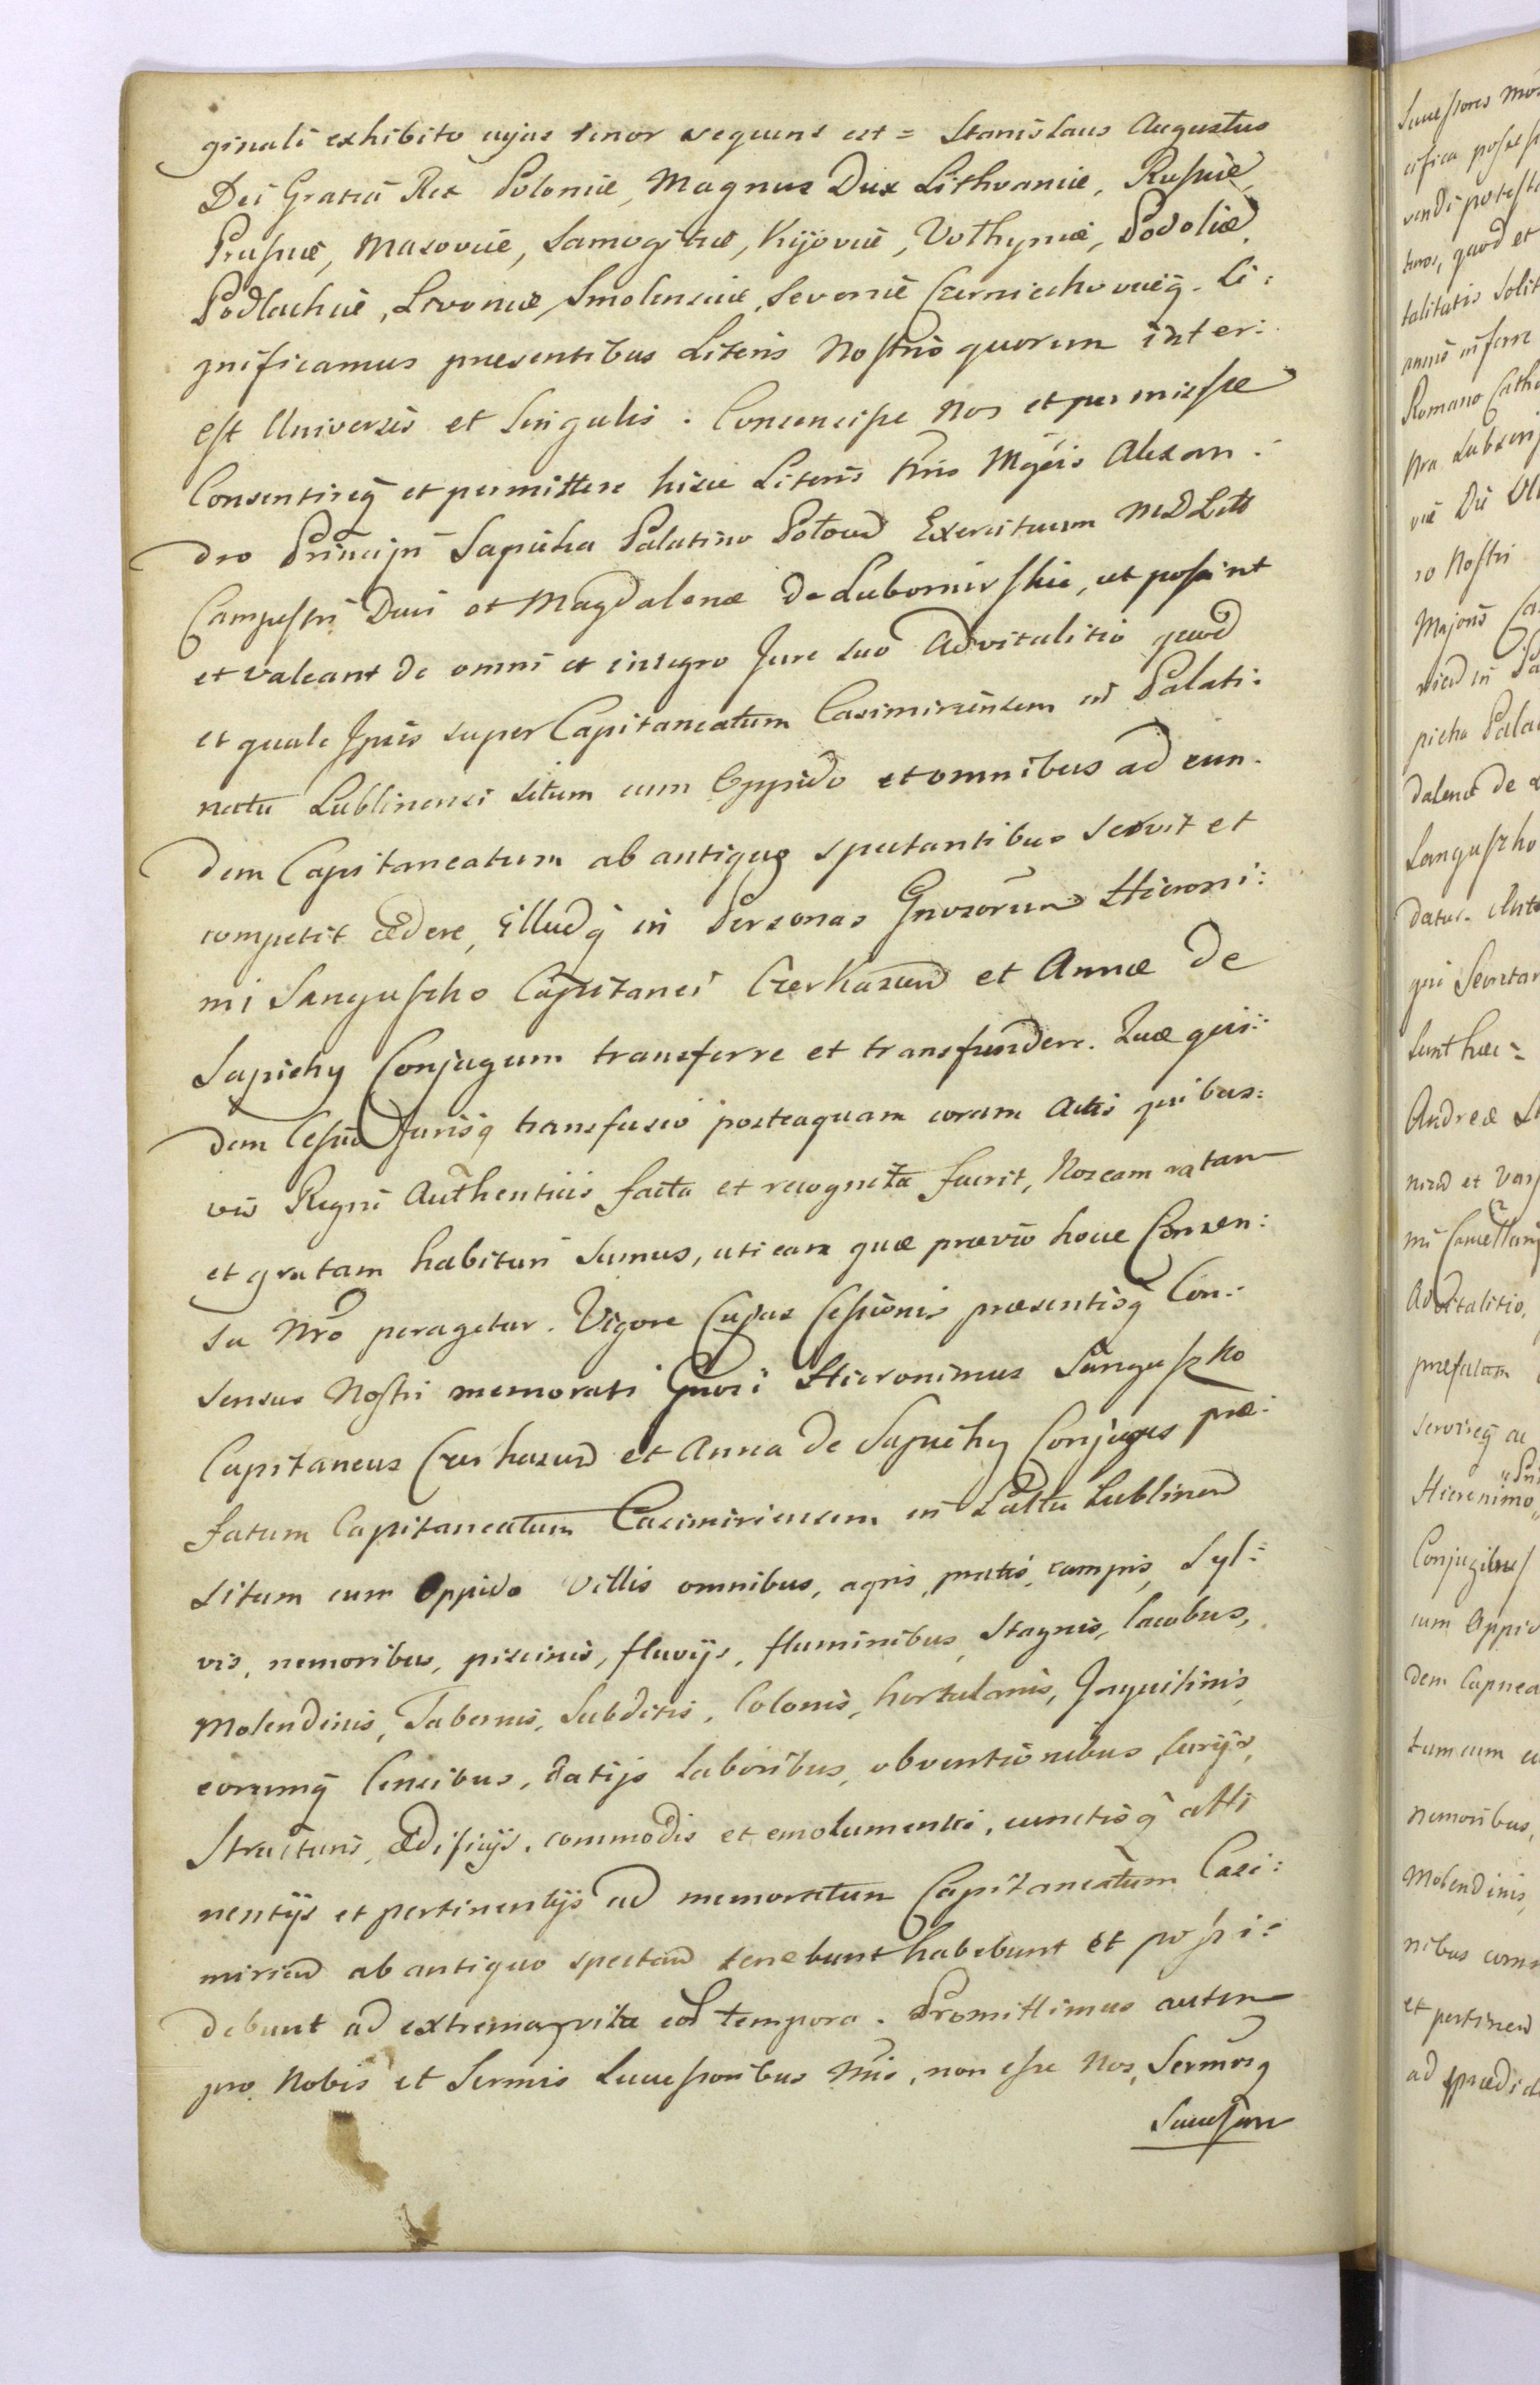 ginali exhibito cujus tenor sequens est = Stanislaus Augustus
Dei Gratiâ Rex Poloniæ, Magnus Dux Lithvaniæ, Rußiæ,
Prußiæ, Masoviæ, Samogitiæ, Kijoviæ, Volhyniæ, Podoliæ,
Podlachiæ, Livoniæ, Smolensciæ, Severiæ Czerniechoviæq. Si:
gnificamus præsentibus Literis Nostris quorum inter:
est Universis et Singulis. Consensiße Nos et permisiße
Consentireq et permittere hisce Literis Nris Mgcis Alexan:
dro Principi Sapieha Palatino Polocen Exercituum MDLitt
Campestri Duci et Magdalenæ de Lubomirskie, ut poßint
et valeant de omni et integro Jure suo Advitalitio quod
et quale Ipsis super Capitaneatum Casimiriensem in Palati:
natu Lublinensi situm cum Oppido et omnibus ad eun-
dem Capitaneatum ab antiquo spectantibus servit et
competit cedere, illudq in Personas Gnosorum Hieroni:
mi Sanguszko Capitanei Czerkasien et Annæ de
Sapiehy Conjugum transferre et transfundere. Quæ qui:
dem Ceßio Jurisq transfusio posteaquam coram Actis quibus:
vis Regni Authenticis facta et recognita fuerit, Nos eam ratam
et gratam habituri sumus, uti eam quæ prævio hocce Consen:
su Nro peragetur. Vigore Cujus Ceßionis præsentisq Con:
sensus Nostri memorati Gnosi Hieronimus Sanguszko
Capitaneus Czerkasien et Anna de Sapiehy Conjuges præ:
fatum Capitaneatum Casimiriensem in Pallttu Lublinen
situm cum Oppido Villis omnibus, agris, pratis, campis, Syl:
vis, nemoribus, piscinis, fluvijs, fluminibus, Stagnis, lacubus,
Molendinis, Tabernis, Subditis, Colonis, hortulanis, Inquilinis,
eorumq Censibus, datijs laboribus, obventionibus, Curijs,
Structuris, ædificijs, commodis et emolumentis, cunctisq atti
nentijs et pertinentijs ad memoratum Capitaneatum Casi:
mirien ab antiquo spectan tenebunt habebunt et poßi:
debunt ad extrema vitæ eor tempora. Promittimus autem
pro Nobis et Sermis Succeßoribus Nris, non eße Nos, Sermosq
Succeßores